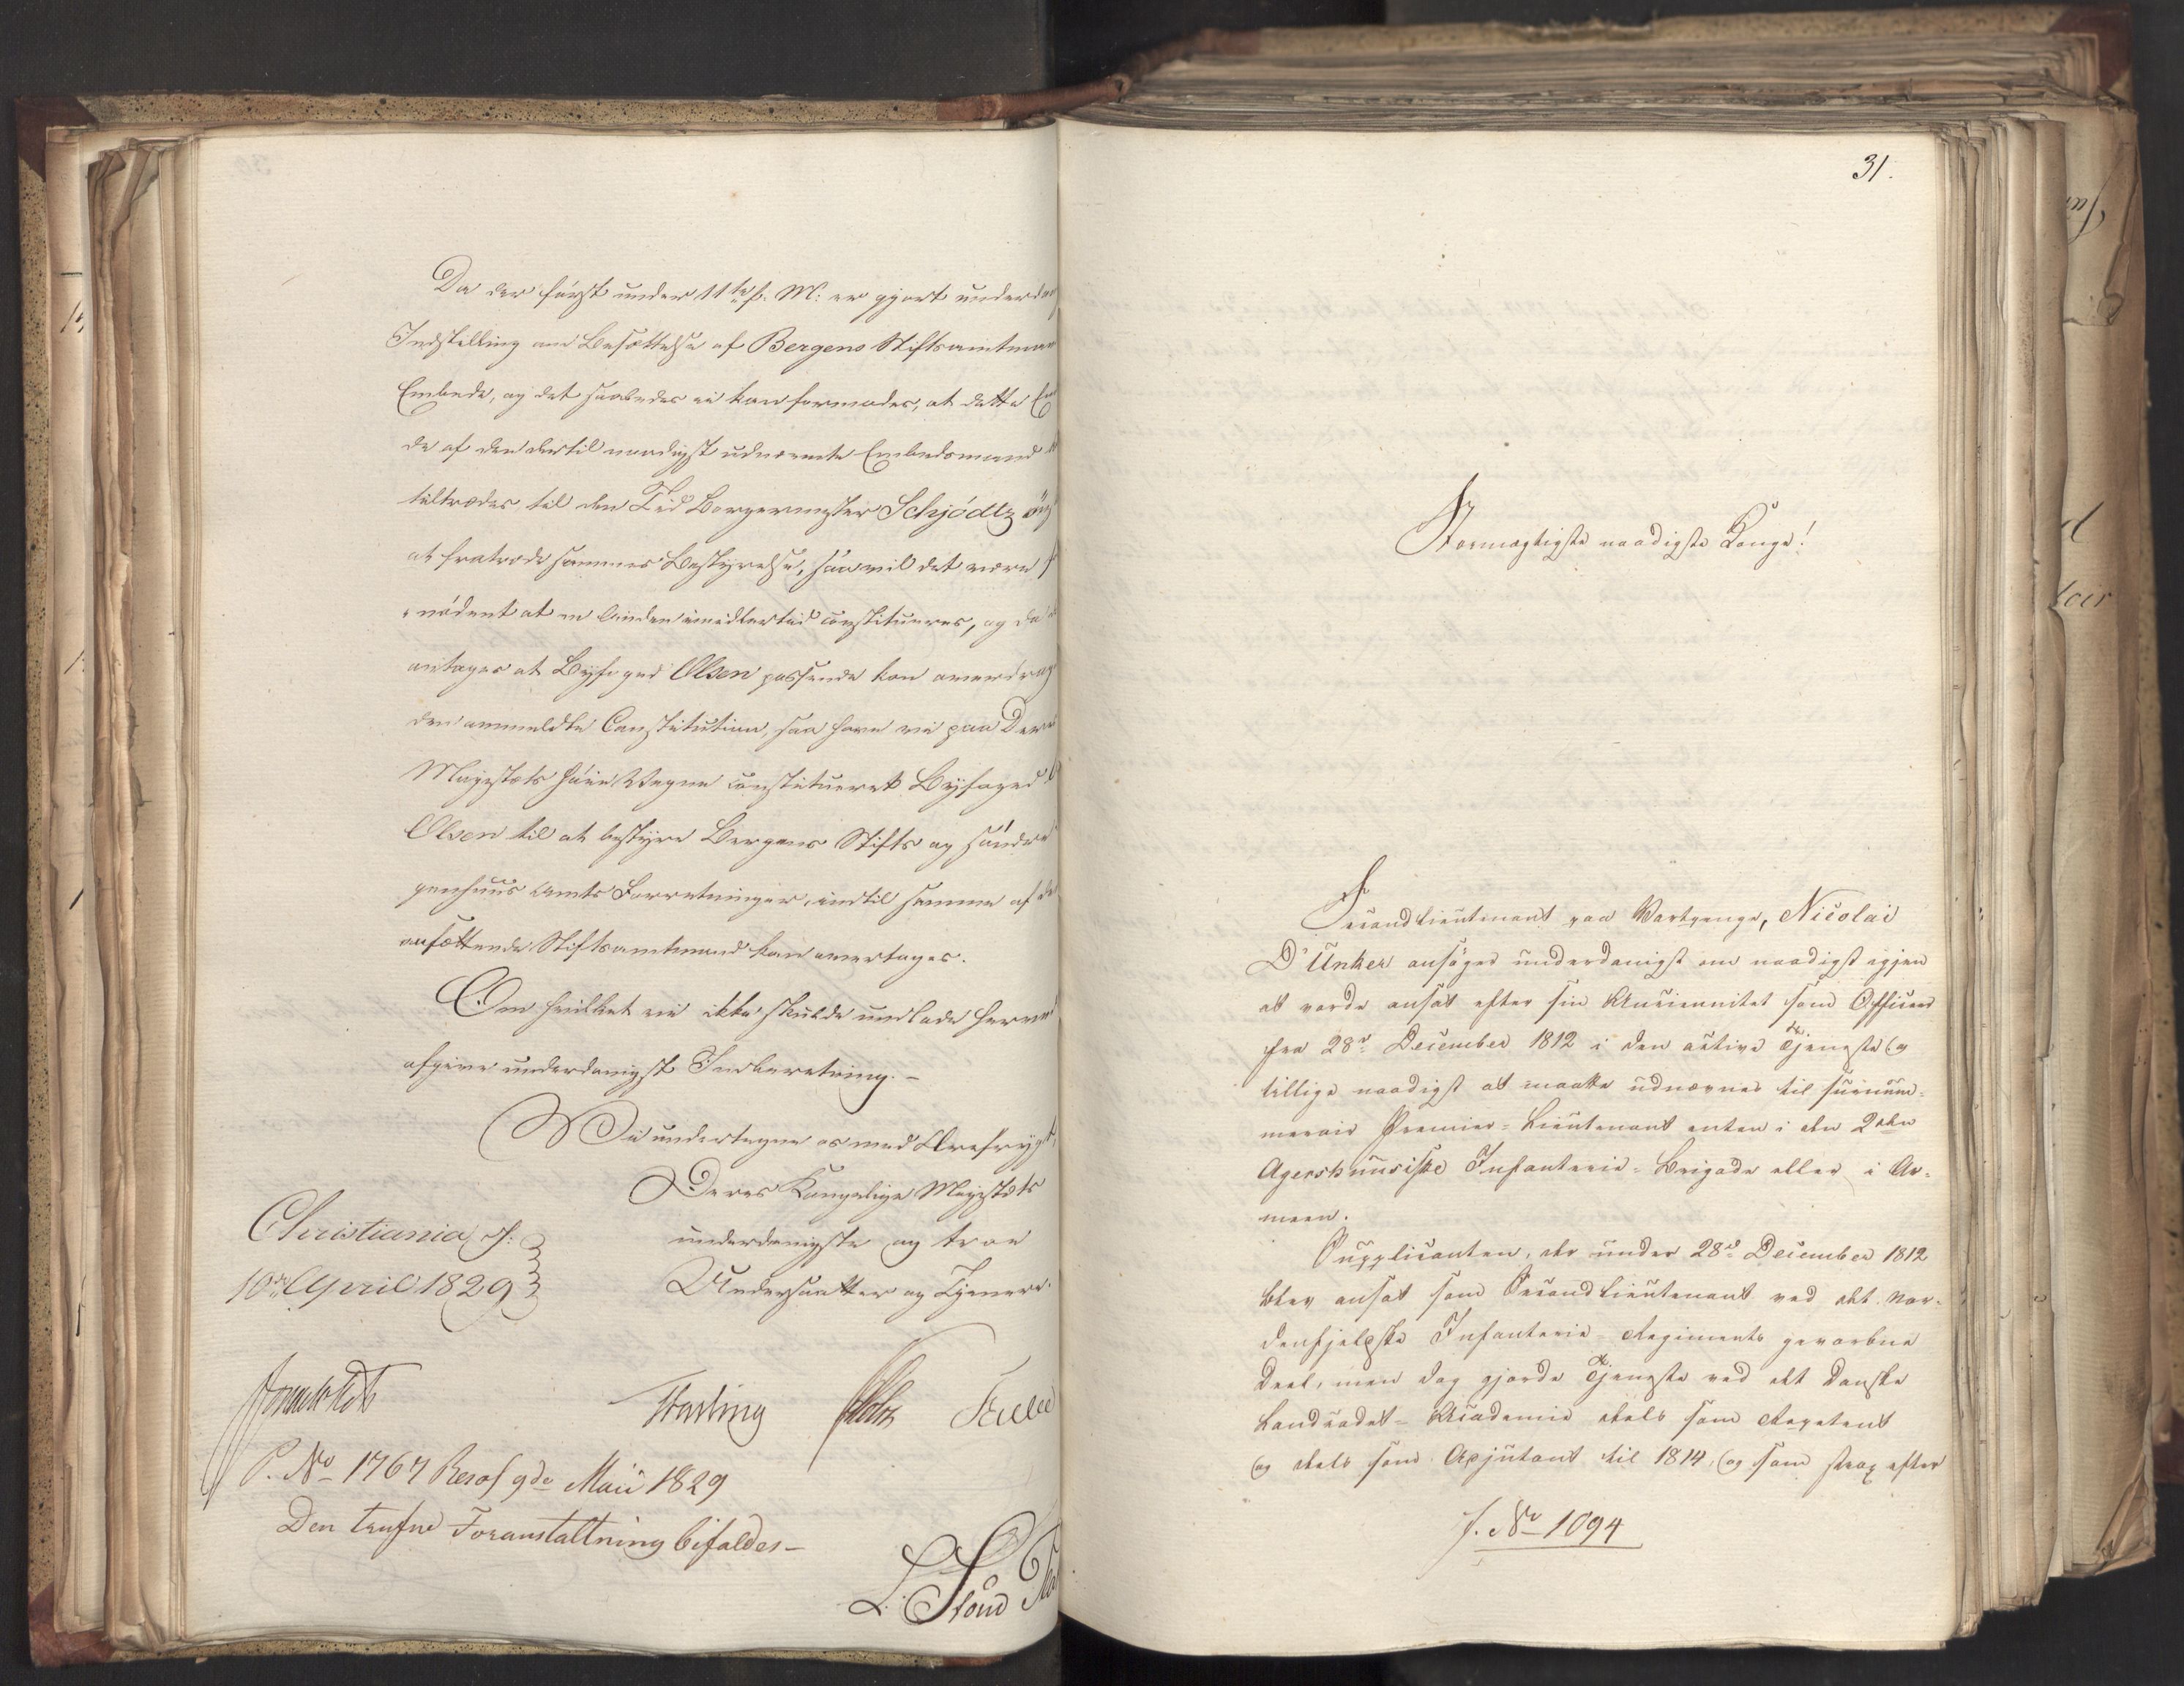 Da der først under 11te f. M: er gjort underdan
Indstilling om Besættelse af Bergens Stiftsamtman
Embede, og det saaledes ei kan formodes, at dette Em
de af den dertil naadigst udnævnte Embedsmand
tiltrædes til den Tid Borgermester Schjödtz øns
at fratræde sammes Bestyrelse, saa vil det være
nödent at en Anden imidlertid constitueres, og da
antages at Byfoged Olsen passende kan overdrag
den anmeldte Constitution, saa have vi paa Der
Majestæts høie Vegne constitueret Byfoged
Olsen til at bestyre Bergens Stifts og Søndre
genhuus Amts Forretninger, indtil samme af
ansættende Stiftsamtmand kan overtages.
Om hvilket vi ikke skulde undlade herved
afgive underdanigst Indberetning. –
Vi undertegne os med Ærefrygt,
Deres Kongelige Majestæts
underdanigste og troe
Undersaatter og Tjenere.
Christiania d:
10de April 1829
P. No 1767 Resol 9de Maii 1829
Den trufne Foranstaltning bifaldes –
31.
Stormægtigste naadigste Konge!
Secondlieutenant paa Vartpenge, Nicolai
D'Unker ansøger underdanigst om naadigst igjen
at vorde ansat efter sin Anciennitet som Officeer
fra 28de December 1812 i den active Tjeneste og
tillige naadigst at maatte udnævnes til surnum-
merair Premier-Lieutenant enten i den 2den
Agershuusiske Infanterie-Brigade eller i Ar-
meen.
Supplicanten, der under 28de December 1812
blev ansat som Secondlieutenant ved det nor-
denfjelske Infanterie-Regiments gevorbne
Deel, men dog gjorde Tjeneste ved det danske
Landcadet-Academie deels som Repetent
og deels som Adjutant til 1814, og som strax efter
J. No 1094